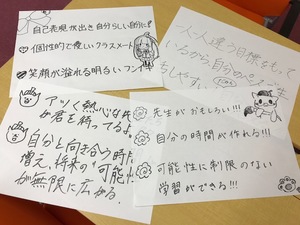 自己表現が出き自分らしい自分に!
個性的で優しいクラスメート
笑顔が溢れる明るいフンイキ
一人一人違う目標をもって
いるから、自分のペースで
アツく熱心な先
が君を待ってるよ
自分と向き合う時間
増え、将来の"可能性
が無限に広がる.
先生がおもしろい!!!
自分の時間が作れる!!!
可能性に制限のない
学習ができる!!!